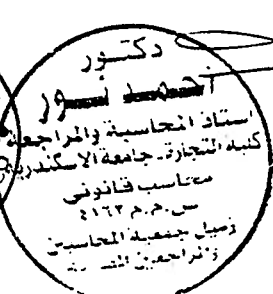 دكتور
أحمد نور
استاذ المحاسبة والمراجعة
كلية التجارة - جامعة الاسكندرية
محاسب قانوني
س.م.م ٤١٦٣
زميل جمعية المحاسبين
والمراجعين